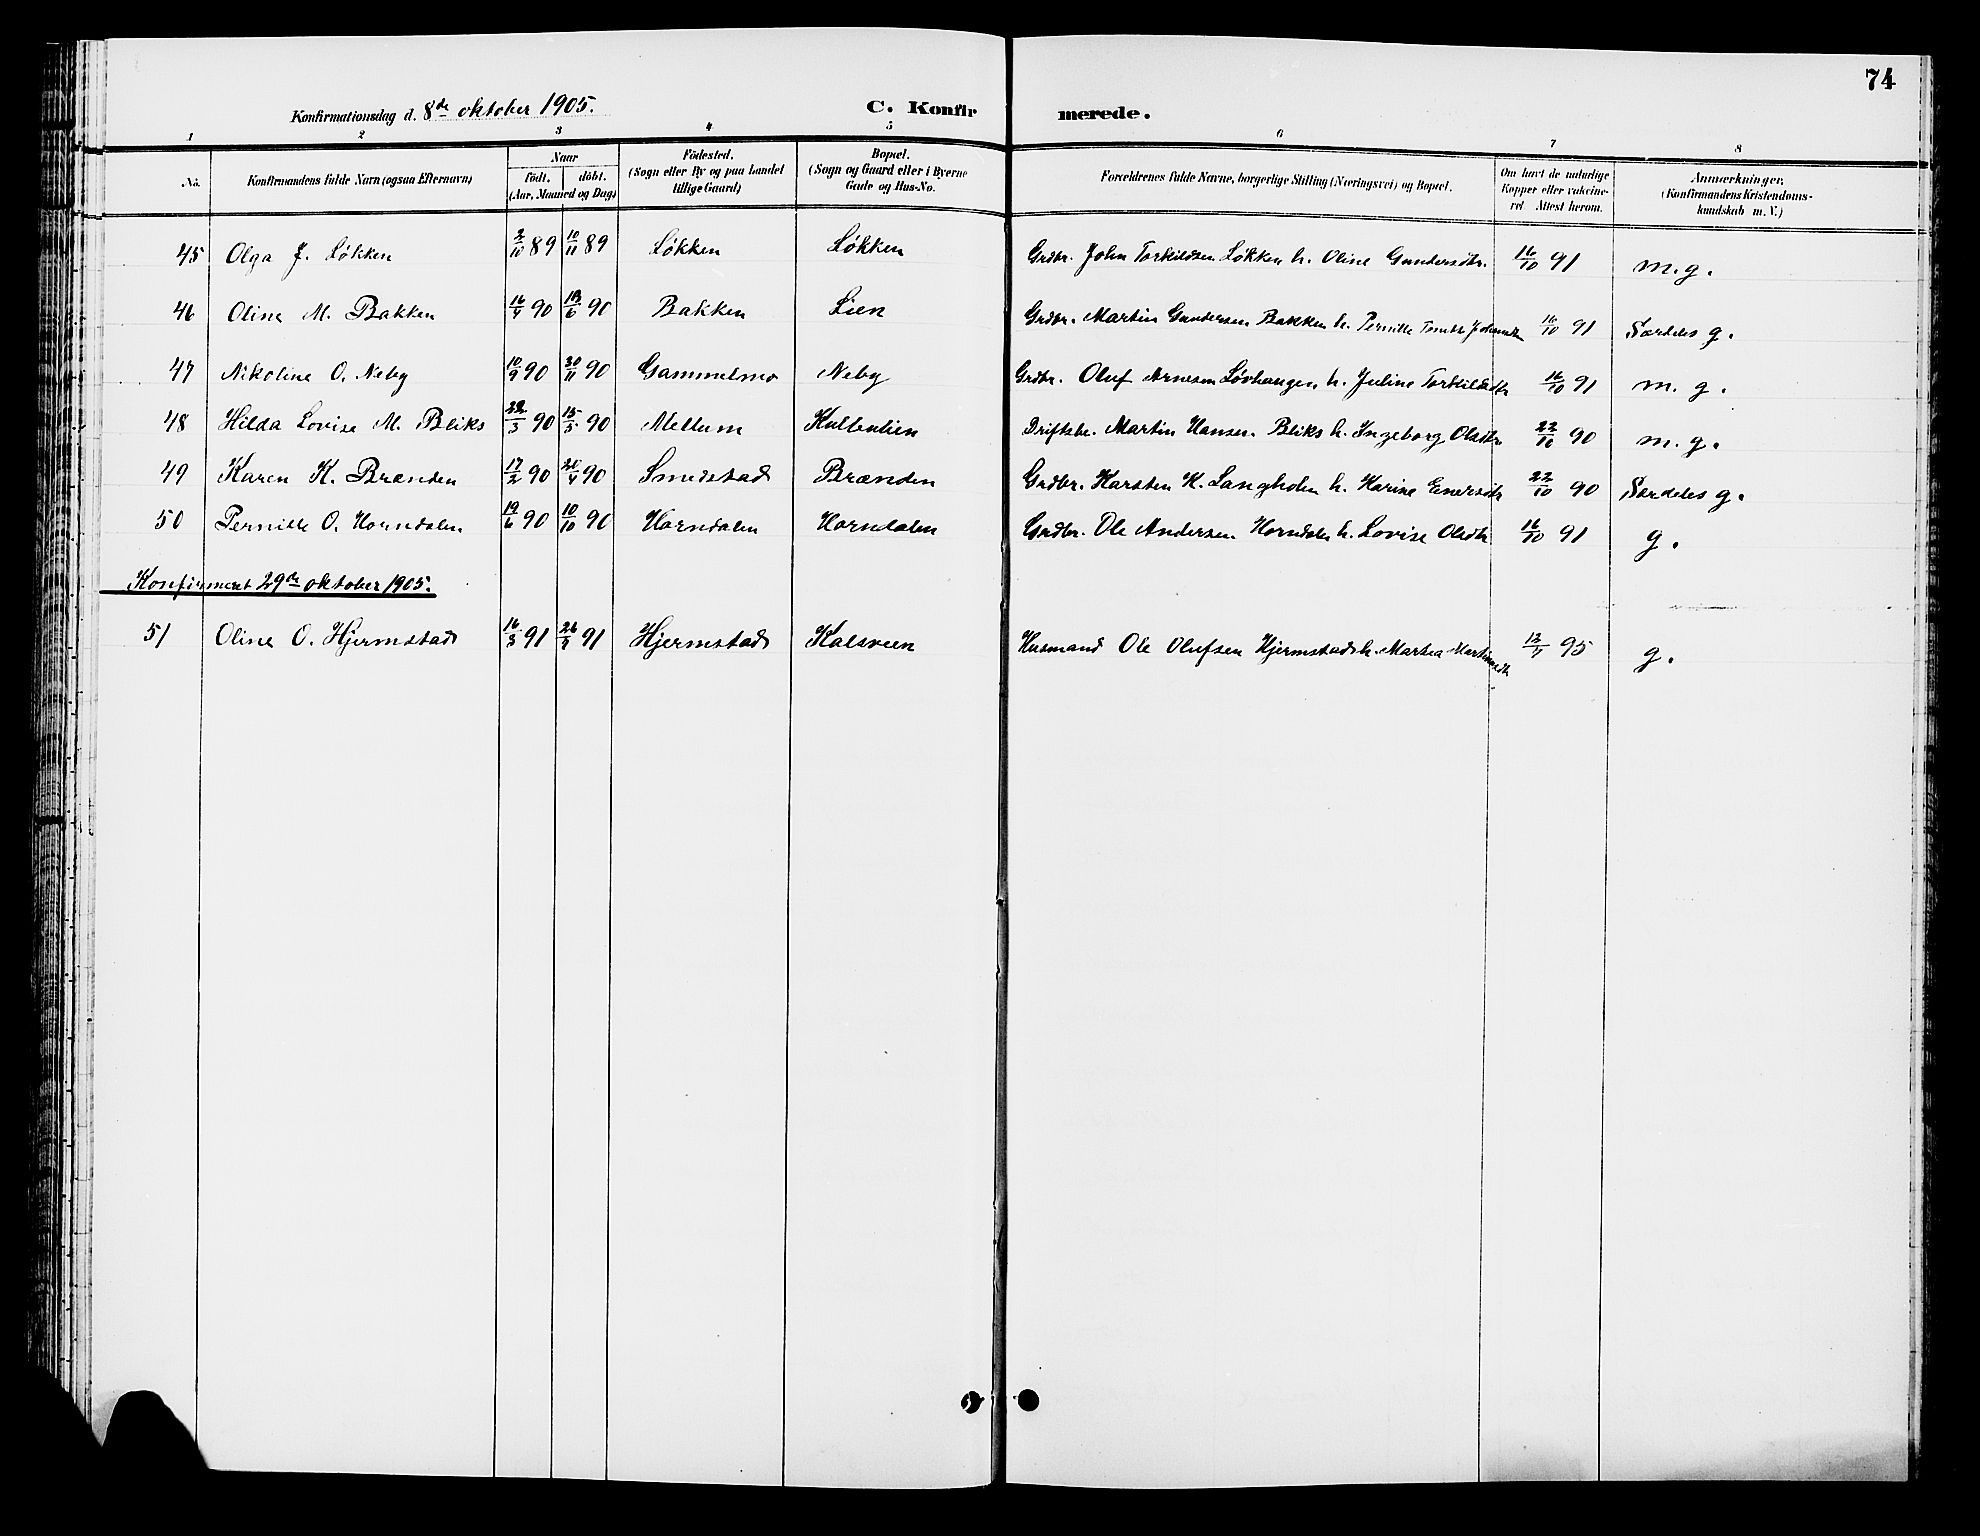 74
Konfirmationsdag d. 8de oktober 1905. C. Konfirmerede.
1 2 3 4 5 6 7 8
No. Konfirmandens fulde Navn (ogsaa Efternavn) Naar født. døbt. (Aar, Maaned og Dag) Fødested. (Sogn eller By og paa Landet tillige Gaard) Bopæl. (Sogn og Gaard eller i Byerne Gade og Hus-No. Forældrenes fulde Navne, borgerlige Stilling (Næringsvei) og Bopæl. Om havt de naturlige Kopper eller vakcineret Attest herom. Anmærkninger, (Konfirmandens Kristendomskundskab m. V.)
45 Olga J. Løkken 2/10 89 10/11 89 Løkken Løkken Grdbr. John Torkildsen Løkken h. Oline Gundersdtr. 16/10 91 m. g.
46 Oline M. Bakken 16/4 90 90 Bakken Lien Grdbr. Martin Gundersen Bakken h. Pernille 16/10 91 Særdeles g.
47 Nikoline O. Neby 10/9 90 30/11 90 Gammelmo Neby Grdbr. Oluf Arnesen Løvhaugen h. Juline Torkildsdtr 16/10 91 m. g.
48 Hilda Lovise M. Bliks 22/3 90 15/5 90 Mellum Driftsbr. Martin Hansen Bliks h. Ingeborg Olsdtr 22/10 90 m. g.
49 Karen K. Brænden 17/2 90 20/4 90 Smedstad Brænden Grdbr. Karsten K. Langholen h. Karine Enersdtr 22/10 90 Særdeles g.
50 Pernille O. Horndalen 19/6 90 10/10 90 Horndalen Horndalen Grdbr. Ole Andersen Horndalen h. Lovise Olsdtr 16/10 91 g.
Konfirmeret 29de oktober 1905.
51 Oline O. Hjermstad 16/3 91 91 Hjermstad Kalsveen Husmand Ole Olufsen Hjermstad h. Martea Martinusdtr 12/7 95 g.